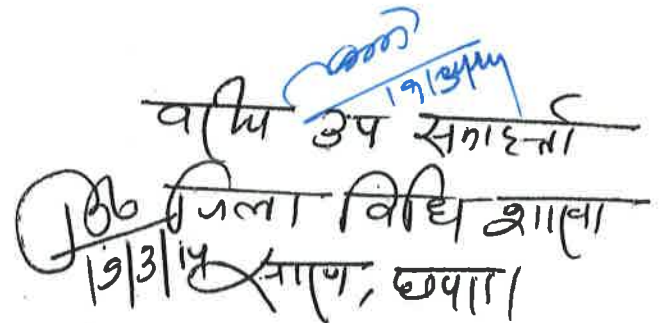 वरीय उप समाहर्त्ता
जिला विधि शाखा
19/3/14 सारण, छपरा।